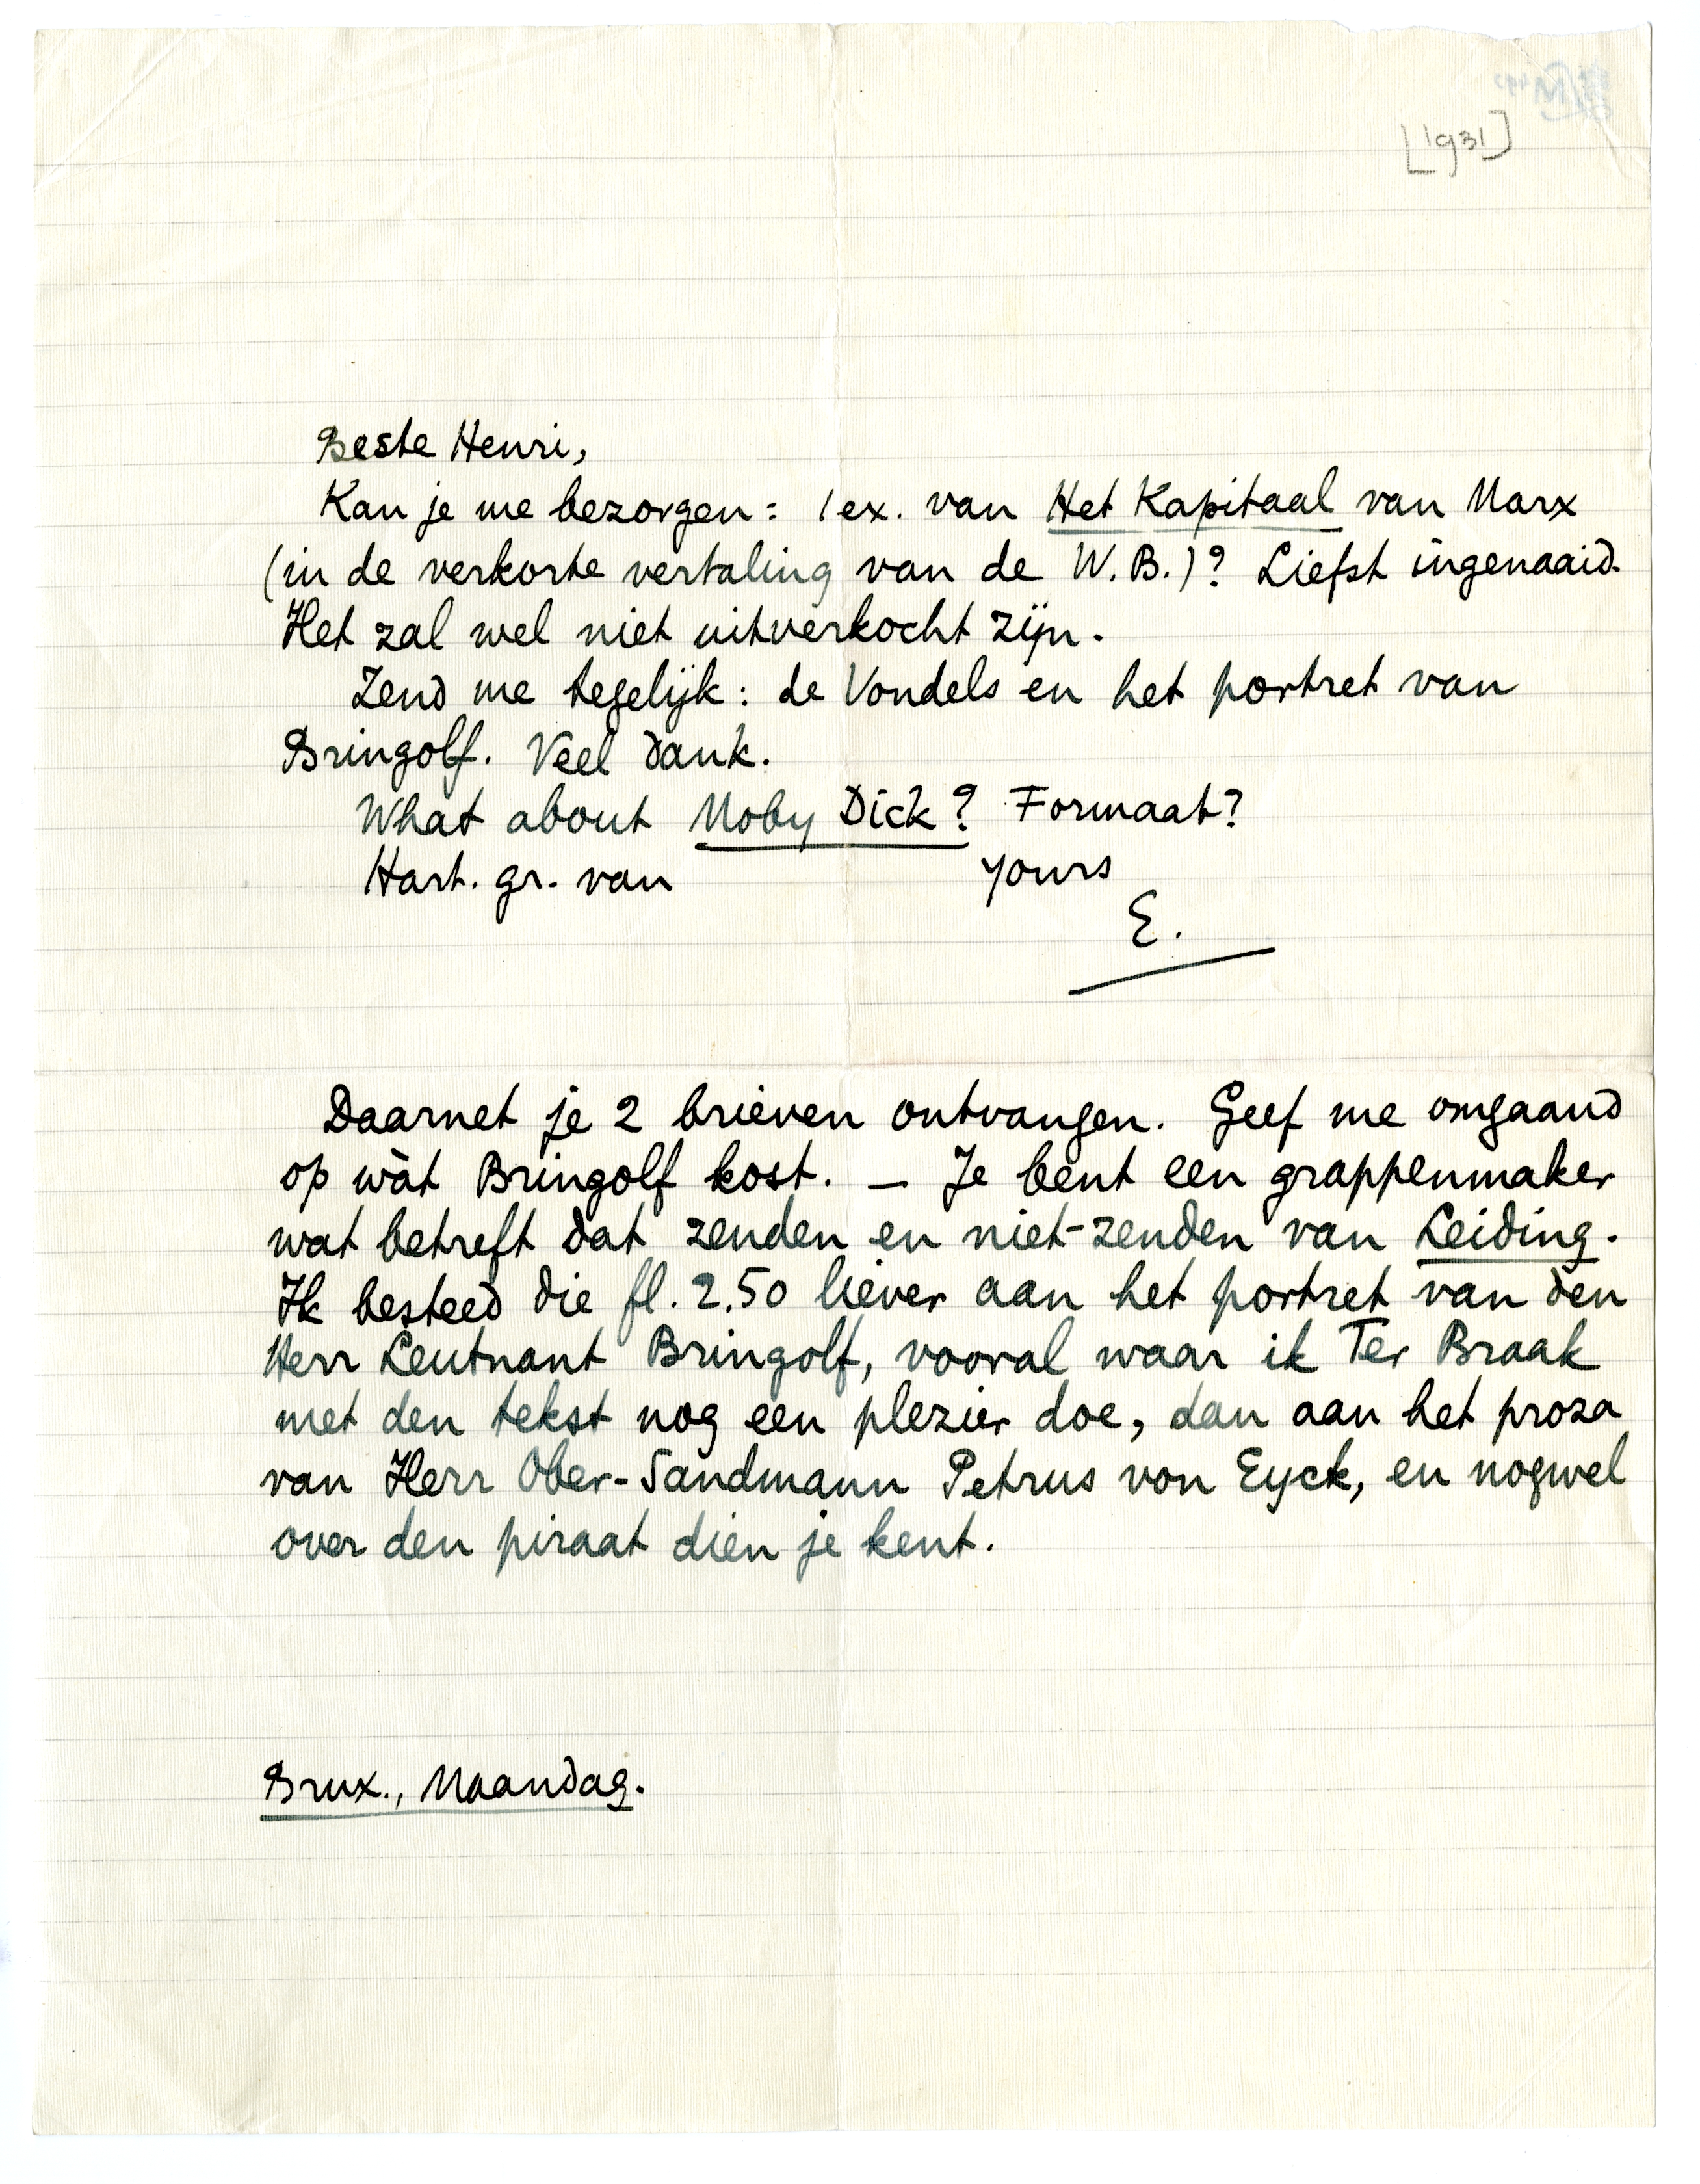 [1931]
Beste Henri,
Kan je me bezorgen: 1 ex. van Het Kapitaal van Marx
(in de verkorte vertaling van de W.B.)? Liefst ingenaaid.
Het zal wel niet uitverkocht zijn.
Zend me tegelijk: de Vondels en het portret van
Bringolf. Veel dank.
What about Moby Dick? Formaat?
Hart. gr. van yours
E.
Daarnet je 2 brieven ontvangen. Geef me omgaand
op wàt Bringolf kost. — Je bent een grappenmaker
wat betreft dat zenden en niet-zenden van Leiding.
Ik besteed die fl. 2.50 liever aan het portret van den
Herr Leutnant Bringolf, vooral waar ik Ter Braak
met den tekst nog een plezier doe, dan aan het proza
van Herr Ober-Sandmann Petrus von Eyck, en nogwel
over den piraat dien je kent.
Brux., Maandag.